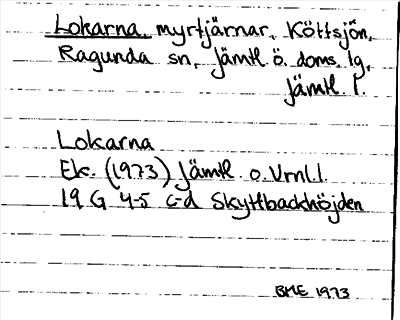 Lokarna myrtjärnar, Köttsjön,
Ragunda sn, Jämtl. ö. doms. lg,
Jämtl. l.
Lokarna
Ek. (1973) Jämtl. o. Vrnl. l.
19 G 4-5 c-d Skyttbackhöjden
BME 1973